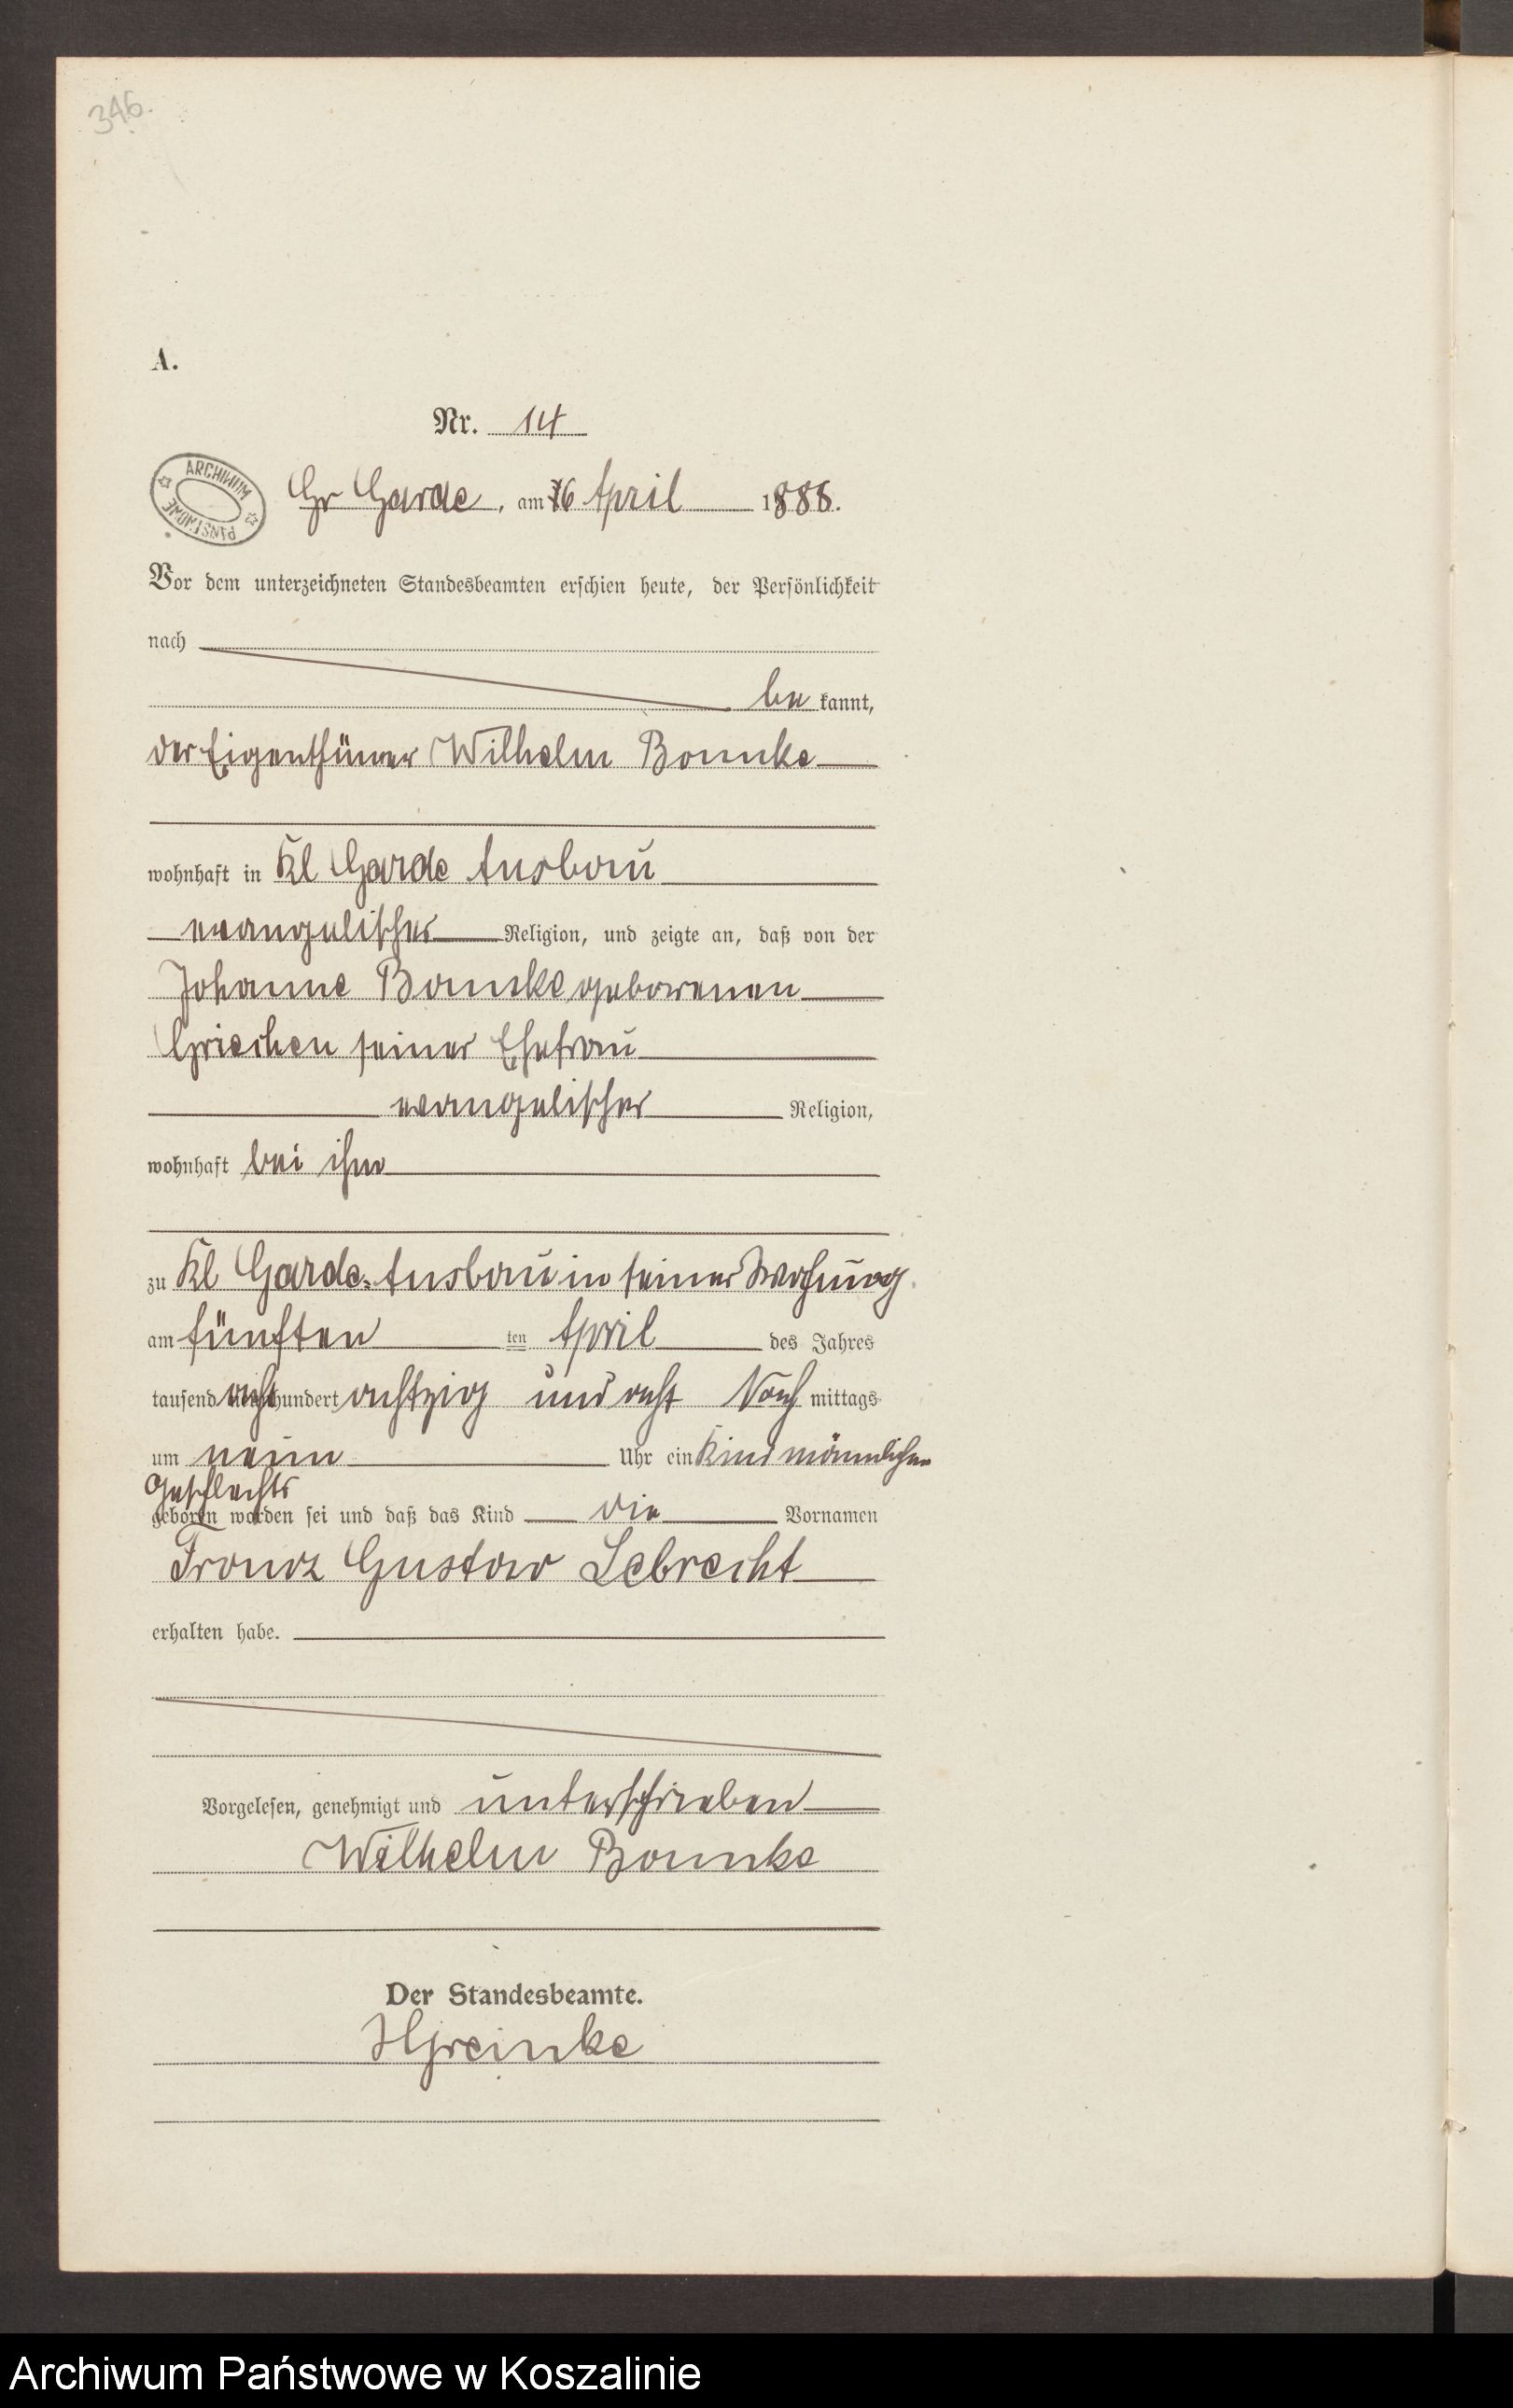 346.
A.
Nr. 14
ARCHIWUM PAŃSTWOWE
Gr Garde, am 16 April 1888.
Vor dem unterzeichneten Standesbeamten erschien heute, der Persönlichkeit
nach
be kannt,
der Eigenthümer Wilhelm Bonnke
wohnhaft in Kl Garde Ausbau
evangelischer Religion, und zeigte an, daß von der
Johanne Bonnke geborenen
Griechen seiner Ehefrau
evangelischer Religion,
wohnhaft bei ihm
zu Kl Garde-Ausbau in seiner Wohnung
am fünften ten April des Jahres
tausend acht hundert achtzig und acht Nach mittags
um neun Uhr ein Kind männlichen
Geschlechts
geboren worden sei und daß das Kind die Vornamen
Franz Gustav Lebrecht
erhalten habe.
Vorgelesen, genehmigt und unterschrieben
Wilhelm Bonnke
Der Standesbeamte.
Archiwum Państwowe w Koszalinie